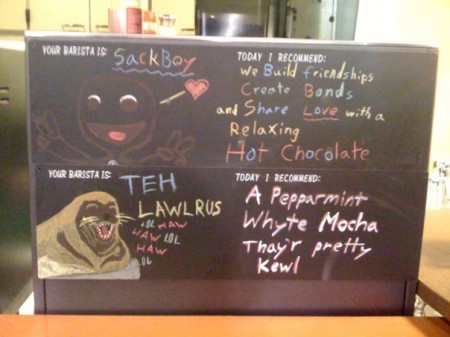 YOUR BARISTA IS: SackBoy
TODAY I RECOMMEND:
We Build friendships
Create Bonds
and Share Love with a
Relaxing
Hot Chocolate
YOUR BARISTA IS: TEH
LAWLRUS
LOL HAW
HAW LOL
HAW
LOL
TODAY I RECOMMEND:
A Pepparmint
Whyte Mocha
Thay'r pretty
Kewl